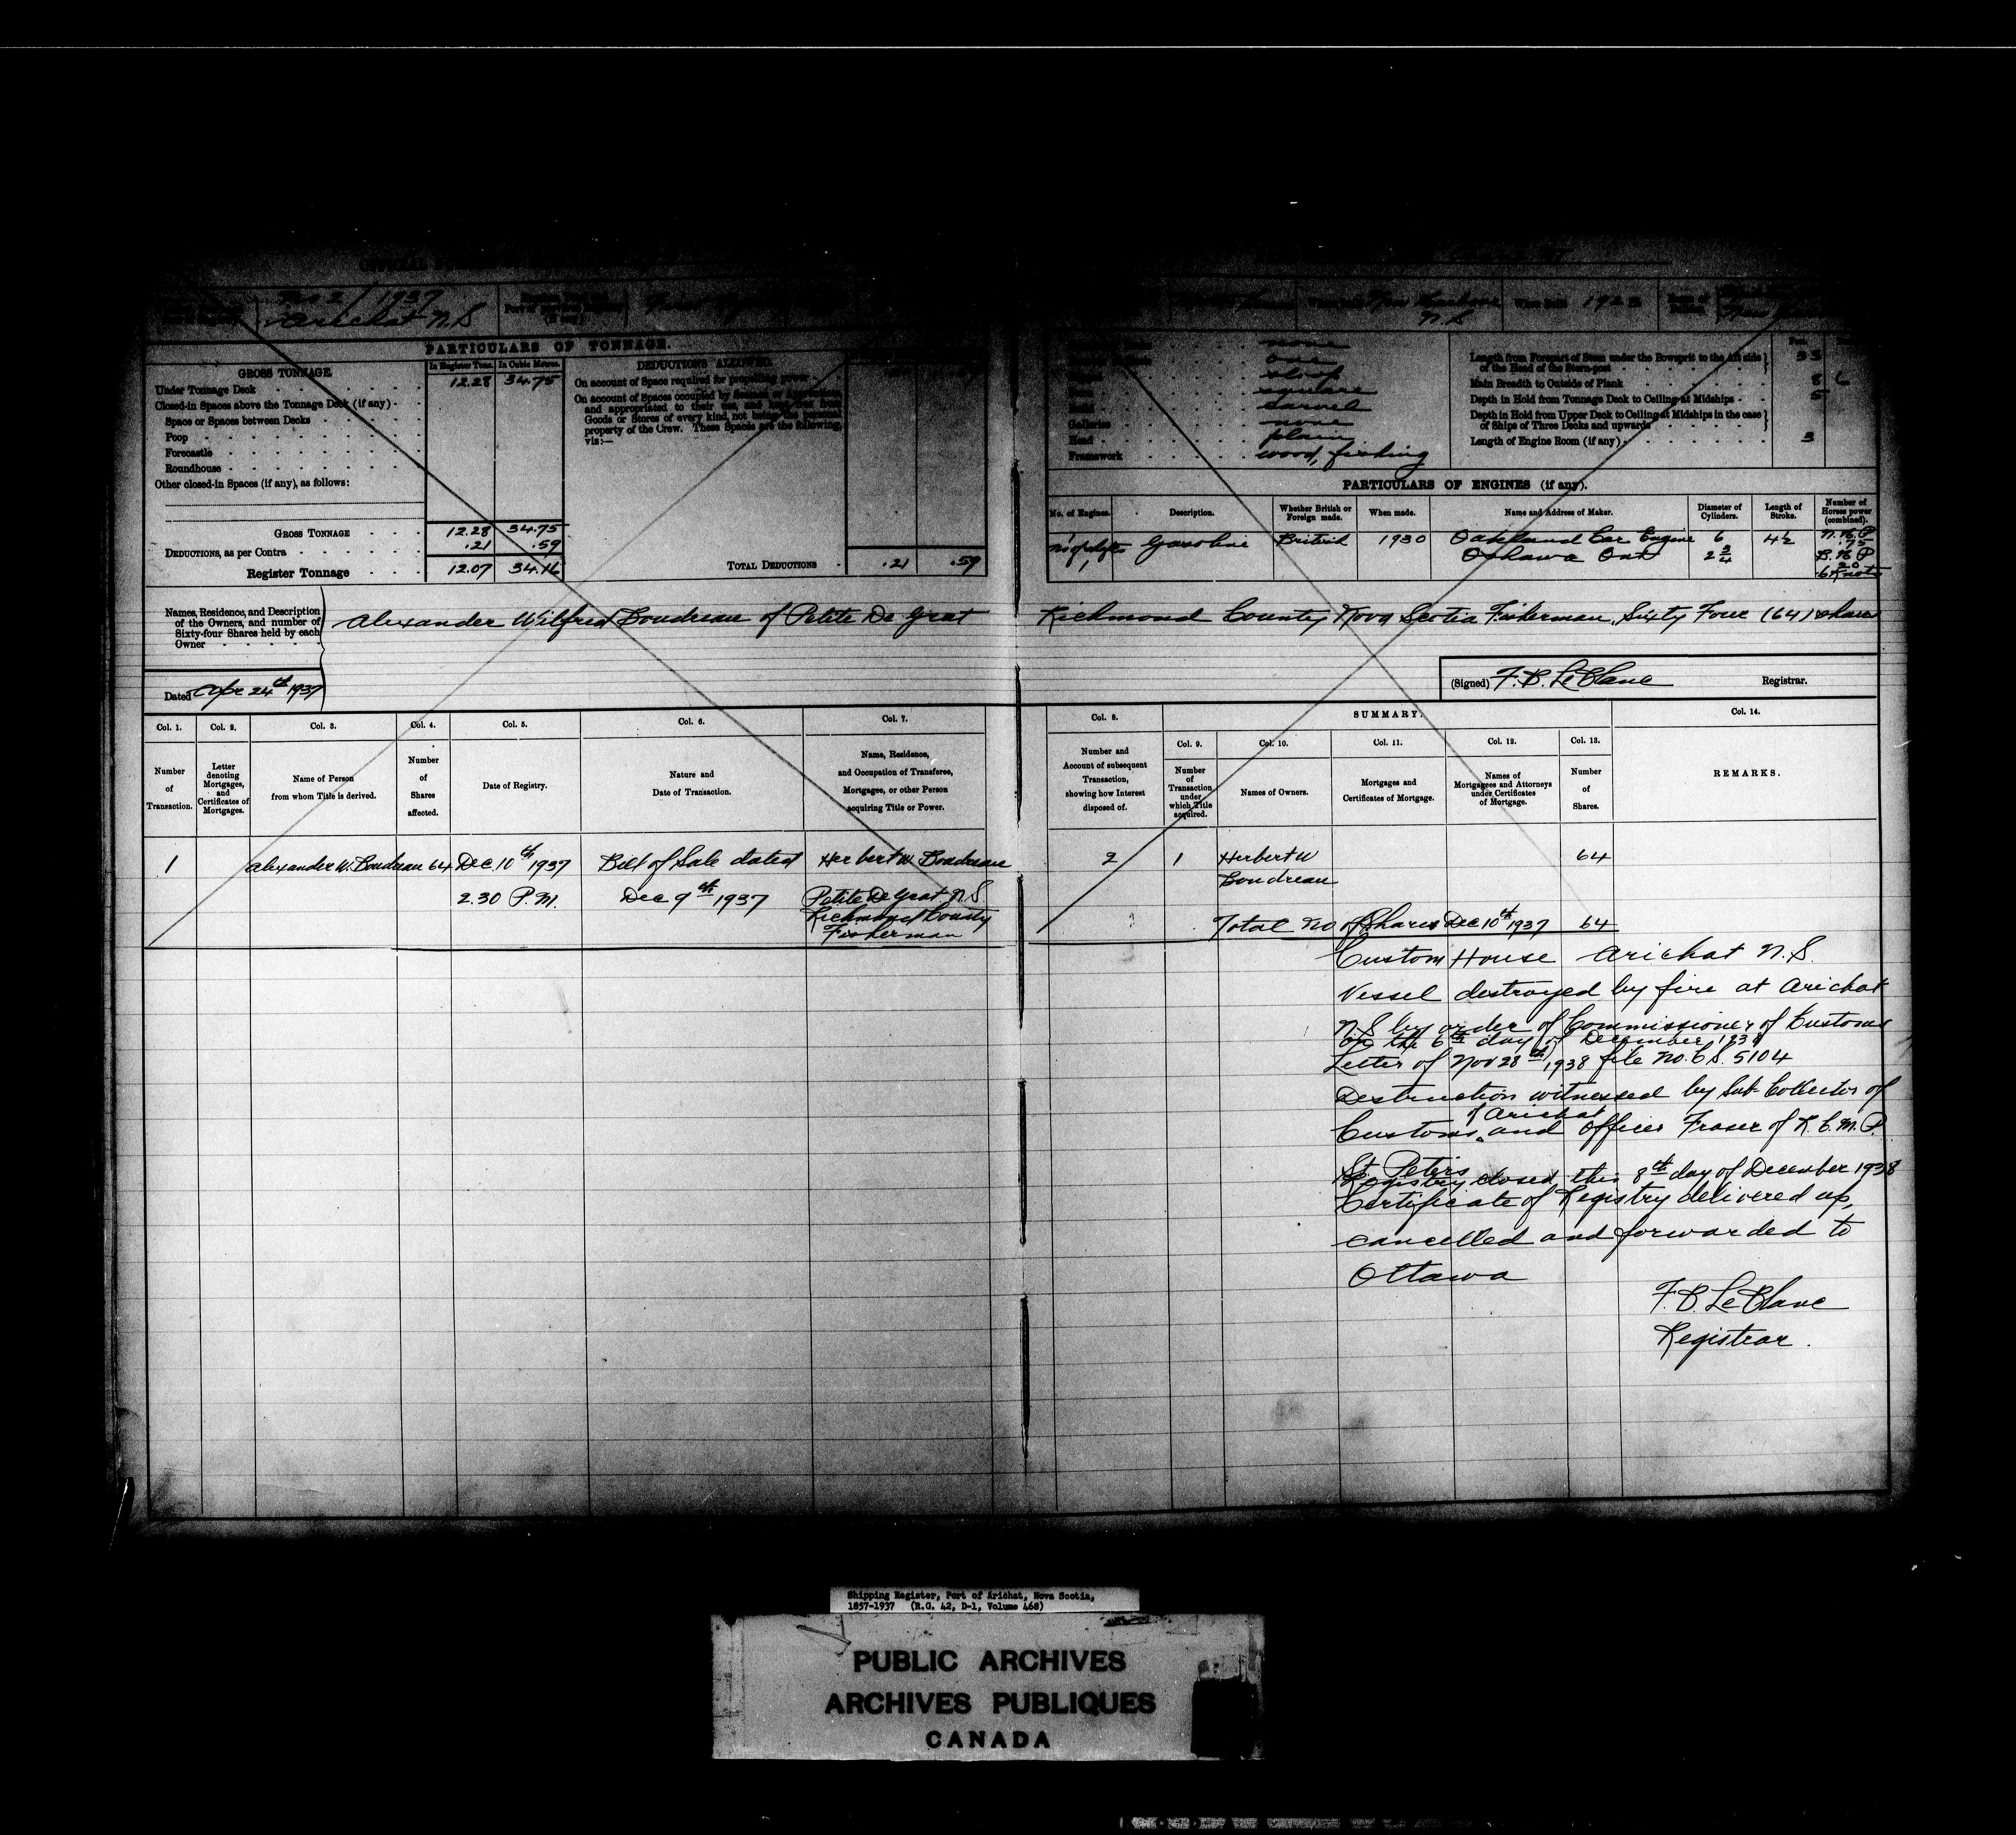 No 2 / 1937
Arichat N.S
N.S
1923
PARTICULARS OF TONNAGE.
GROSS TONNAGE
In Register Tons. In Cubic Metres.
Under Tonnage Deck 12.28 34.75
Closed-in Spaces above the Tonnage Deck (if any)
Space or Spaces between Decks
Poop
Forecastle
Roundhouse
Other closed-in Spaces (if any), as follows:
GROSS TONNAGE 12.28 34.75
DEDUCTIONS, as per Contra .21 .59
Register Tonnage 12.07 34.16
DEDUCTIONS ALLOWED.
On account of Space required for propelling power
On account of Spaces occupied by
and appropriated to their use, and kept free from
Goods or Stores of every kind, not being the personal
property of the Crew. These Spaces are the following,
viz:—
TOTAL DEDUCTIONS .21 .59
none
one
sloop
square
carvel
Galleries none
Head plain
Framework wood, fishing
Length from Forepart of Stem under the Bowsprit to the Aft side
of the Head of the Stern-post 33
Main Breadth to Outside of Plank 8 6
Depth in Hold from Tonnage Deck to Ceiling at Midships 5
Depth in Hold from Upper Deck to Ceiling at Midships in the case
of Ships of Three Decks and upwards
Length of Engine Room (if any) 3
PARTICULARS OF ENGINES (if any).
No. of Engines. Description. Whether British or Foreign made. When made. Name and Address of Maker. Diameter of Cylinders. Length of Stroke. Number of Horses power (combined).
1 Gasoline British 1930 Oakland Car Engine 6 4½ N.H.P
No of shafts Oshawa Ont 2¾ .75
1 B.H.P
20
6 Knots
Names, Residence, and Description
of the Owners, and number of
Sixty-four Shares held by each
Owner
Alexander Wilfred Boudreau of Petite De Grat Richmond County Nova Scotia Fisherman, Sixty Four (64) shares
Dated Apr 24th 1937
(Signed) F.B. LeBlanc Registrar.
Col. 1. Col. 2. Col. 3. Col. 4. Col. 5. Col. 6. Col. 7. Col. 8. SUMMARY. Col. 14.
Col. 9. Col. 10. Col. 11. Col. 12. Col. 13.
Number of Transaction.
Letter denoting Mortgages, and Certificates of Mortgages.
Name of Person from whom Title is derived.
Number of Shares affected.
Date of Registry.
Nature and Date of Transaction.
Name, Residence, and Occupation of Transferee, Mortgagee, or other Person acquiring Title or Power.
Number and Account of subsequent Transaction, showing how Interest disposed of.
Number of Transaction under which Title acquired.
Names of Owners.
Mortgages and Certificates of Mortgage.
Names of Mortgagees and Attorneys under Certificates of Mortgage.
Number of Shares.
REMARKS.
1 Alexander W. Boudreau 64 Dec 10th 1937 Bill of Sale dated Herbert W Boudreau 2 1 Herbert W 64
Boudreau
2.30 P.M. Dec 9th 1937 Petite De Grat N.S.
Richmond County
Fisherman
Total No of Shares Dec 10th 1937 64
Custom House Arichat N.S.
Vessel destroyed by fire at Arichat
N S by order of Commissioner of Customs
on the 6th day of December 1938
Letter of Nov 28th, 1938 file No. C.S. 5104
Destruction witnessed by Sub-Collector of
of Arichat
Customs and Officer Fraser of R.C.M.P.
St. Peters
Registry closed this 8th day of December 1938
Certificate of Registry delivered up,
cancelled and forwarded to
Ottawa
F.B. LeBlanc
Registrar.
Shipping Register, Port of Arichat, Nova Scotia,
1857-1937 (R.G. 42, D-1, Volume 468)
PUBLIC ARCHIVES
ARCHIVES PUBLIQUES
CANADA